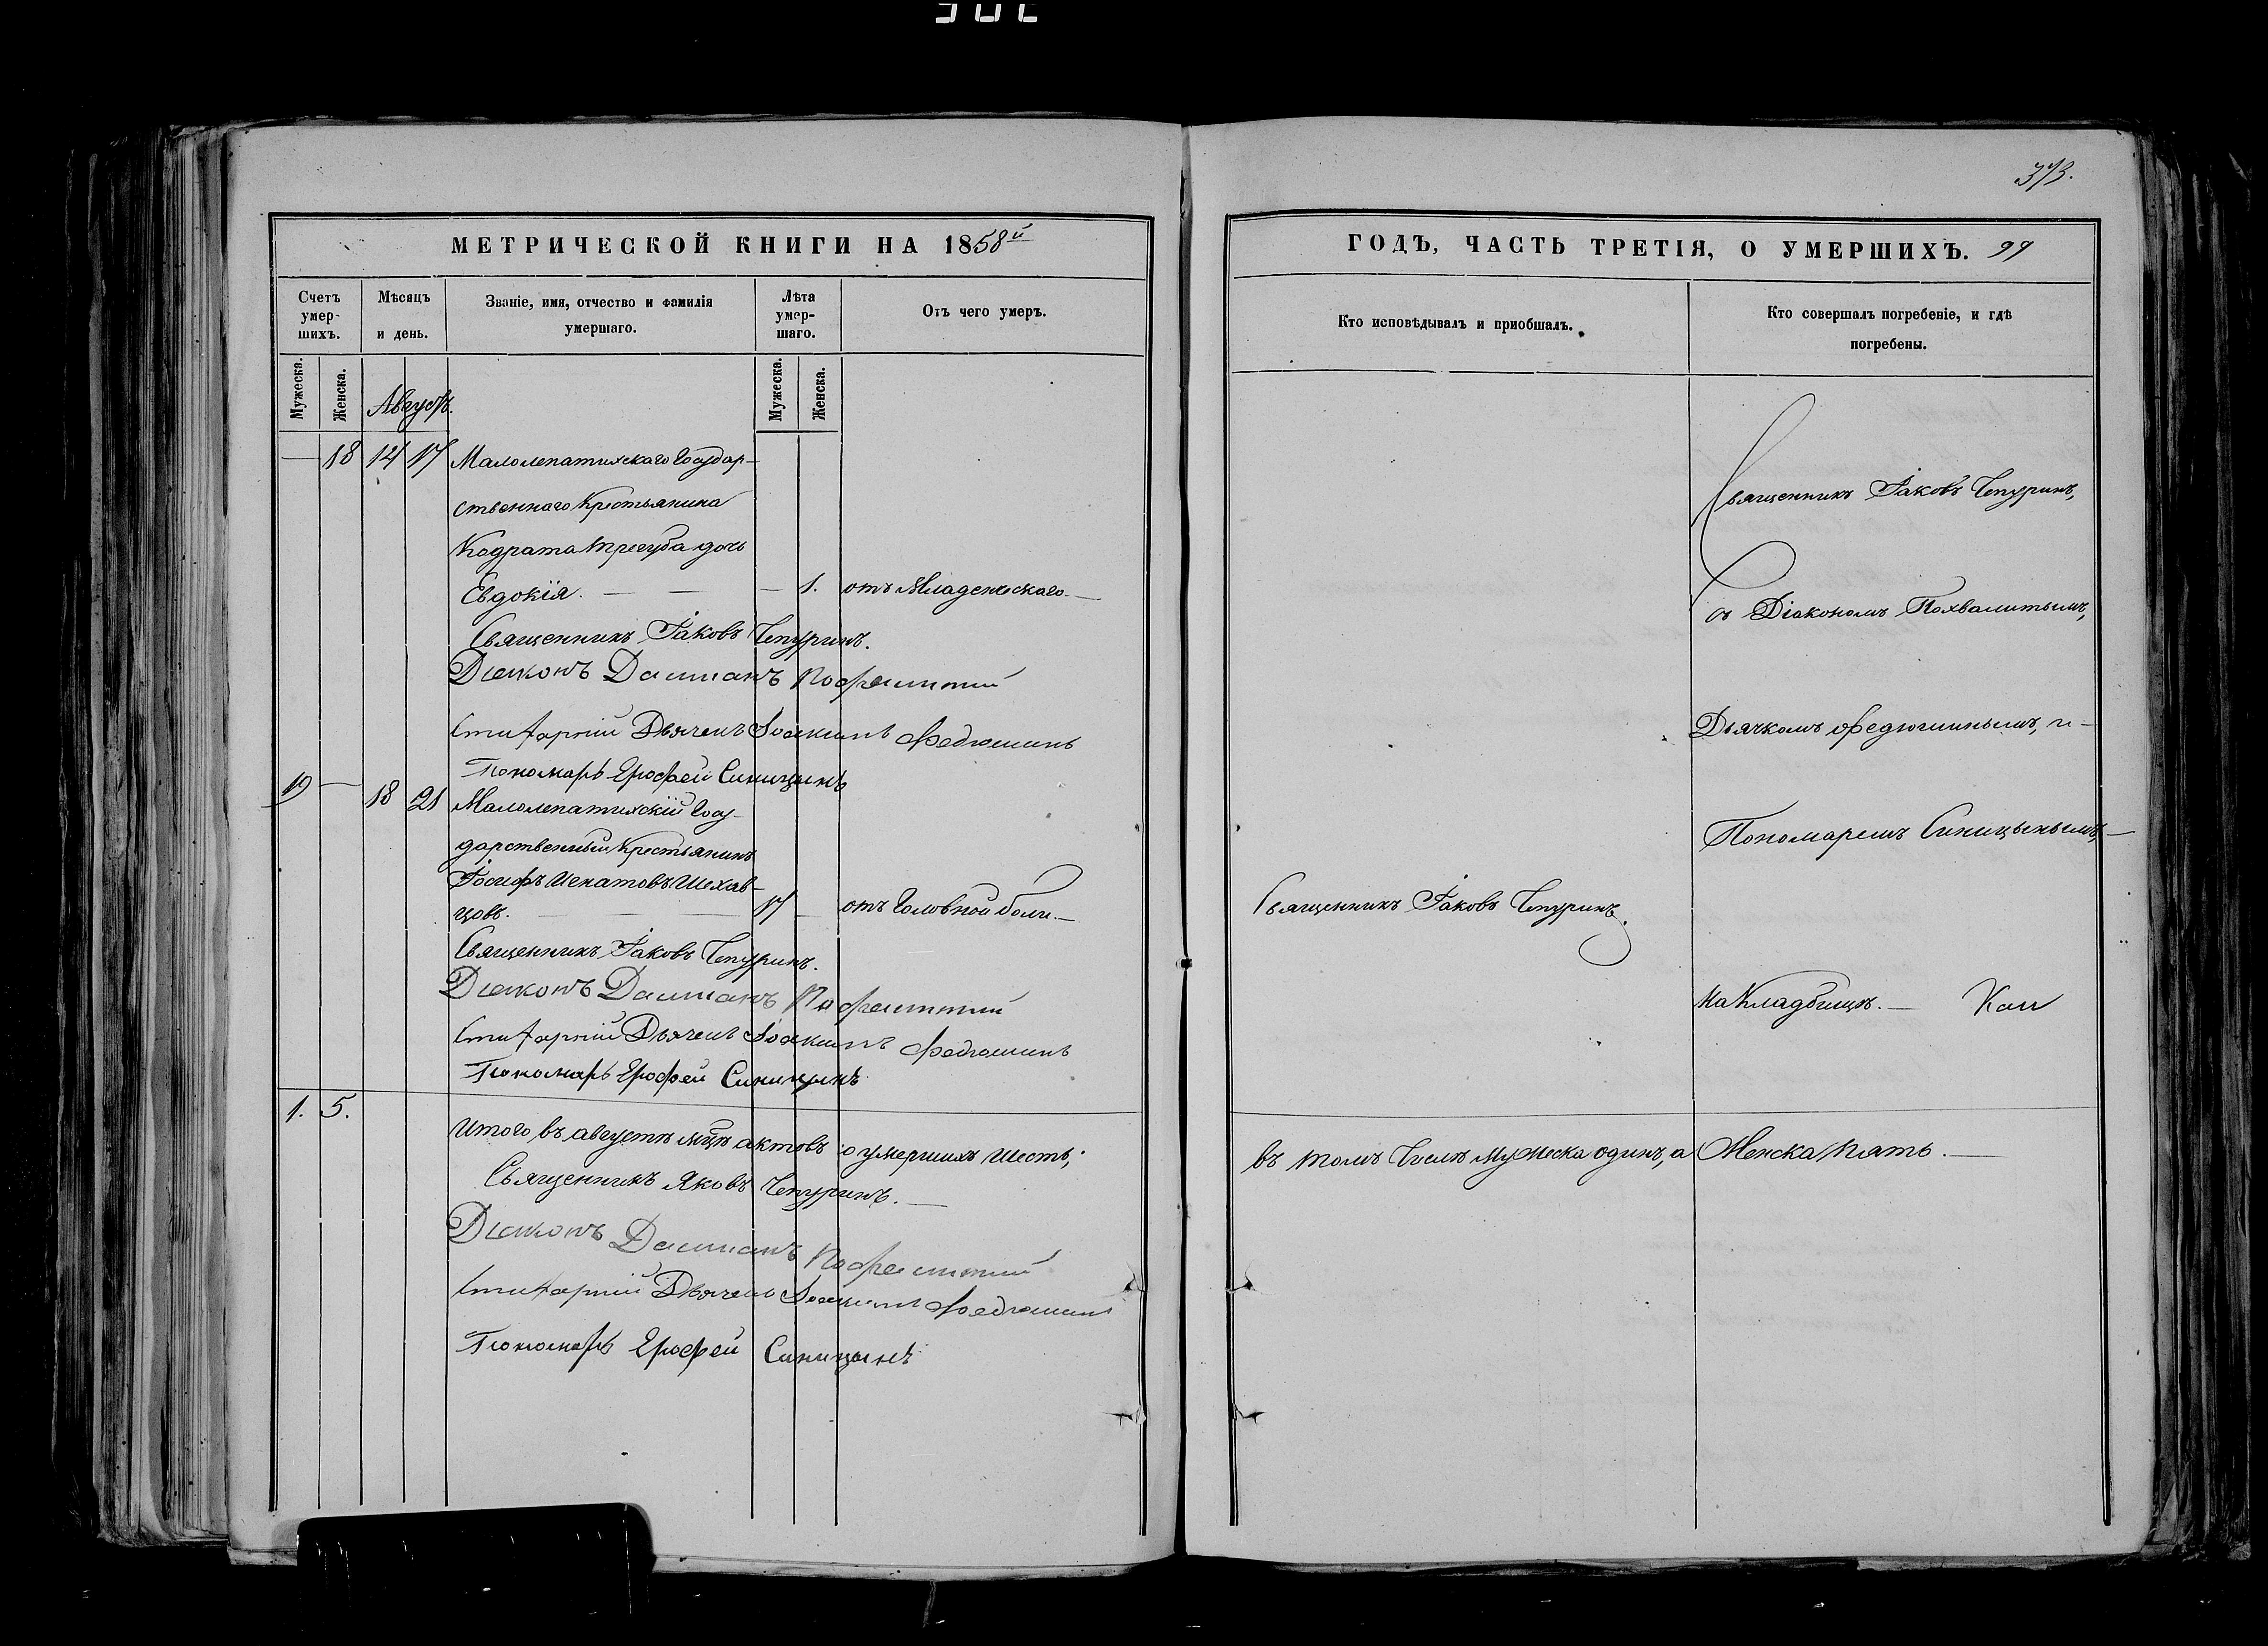 373.
МЕТРИЧЕСКОЙ КНИГИ НА 1858й
Счетъ умер-шихъ.
Мѣсяцъ и день.
Званіе, имя, отчество и фамилія умершаго.
Лѣта умер-шаго.
Отъ чего умеръ.
Мужеска.
Женска.
Мужеска.
Женска.
Августъ.
— 18 14 17 Малолепатихскаго Государ-
ственнаго Крестьянина
Кодрата Трегуба дочь
Евдокія. — — — 1. отъ Младенческаго. —
Священникъ Іаковъ Чепуринъ.
Діаконъ Даміанъ
Стихарный Дьячекъ Іоакимъ Федюшинъ
Пономарь Ерофей Синицынъ
19 — 18 21 Малолепатихскій Госу-
дарственный Крестьянинъ
Іосифъ Игнатовъ Шехав-
цовъ. — — 17 — отъ Головной боли. —
Священникъ Іаковъ Чепуринъ.
Діаконъ Даміанъ
Стихарный Дьячекъ Іоакимъ Федюшинъ
Пономарь Ерофей Синицынъ
1. 5.
Итого въ августѣ мцѣ актовъ о умершихъ шесть;
Священникъ Яковъ Чепуринъ. —
Діаконъ Даміанъ
Стихарный Дьячекъ Іоакимъ Федюшинъ
Пономарь Ерофей Синицынъ
ГОДЪ, ЧАСТЬ ТРЕТІЯ, О УМЕРШИХЪ. 99
Кто исповѣдывалъ и пріобщалъ.
Кто совершалъ погребеніе, и гдѣ погребены.
Священникъ Іаковъ Чепуринъ,
съ Діакономъ Похвалитымъ,
Дьячкомъ Федюшинымъ, и —
Пономаремъ Синицынымъ, —
Священникъ Іаковъ Чепуринъ.
На Кладбищѣ. —
въ томъ Числѣ Мужеска одинъ, а Женска Пять. —